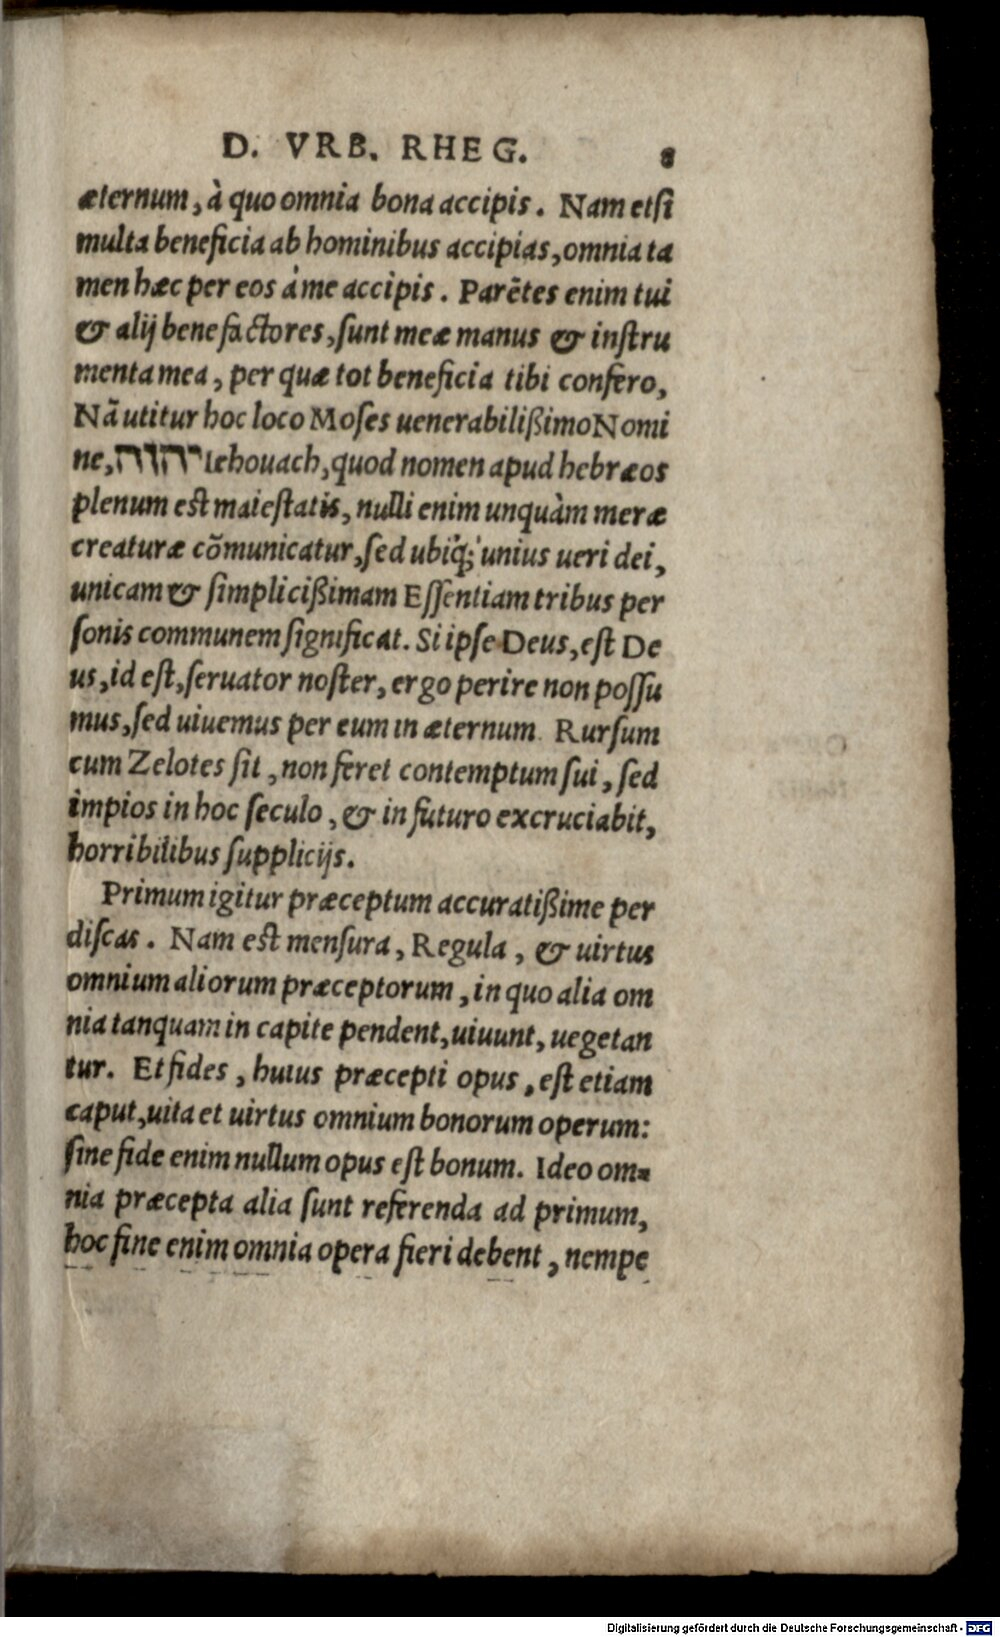 D. VRB. RHEG. 8
æternum, à quo omnia bona accipis. Nam etſi
multa beneficia ab hominibus accipias, omnia ta
men hæc per eos à me accipis. Parẽtes enim tui
& alij benefactores, ſunt meæ manus & inſtru
menta mea, per quæ tot beneficia tibi confero,
Nã utitur hoc loco Moſes uenerabilißimo Nomi
ne, יהוה Iehouach, quod nomen apud hebræos
plenum eſt maieſtatis, nulli enim unquàm meræ
creaturæ cõmunicatur, ſed ubiq́; unius ueri dei,
unicam & ſimplicißimam Eſſentiam tribus per
ſonis communem ſignificat. Si ipſe Deus, eſt De
us, id eſt, ſeruator noſter, ergo perire non poſſu
mus, ſed uiuemus per eum in æternum. Rurſum
cum Zelotes ſit, non feret contemptum ſui, ſed
impios in hoc ſeculo, & in futuro excruciabit,
horribilibus ſupplicijs.
Primum igitur præceptum accuratißime per
diſcas. Nam eſt menſura, Regula, & uirtus
omnium aliorum præceptorum, in quo alia om
nia tanquam in capite pendent, uiuunt, uegetan
tur. Et fides, huius præcepti opus, eſt etiam
caput, uita et uirtus omnium bonorum operum:
ſine fide enim nullum opus eſt bonum. Ideo om-
nia præcepta alia ſunt referenda ad primum,
hoc fine enim omnia opera fieri debent, nempe
Digitalisierung gefördert durch die Deutsche Forschungsgemeinschaft - DFG